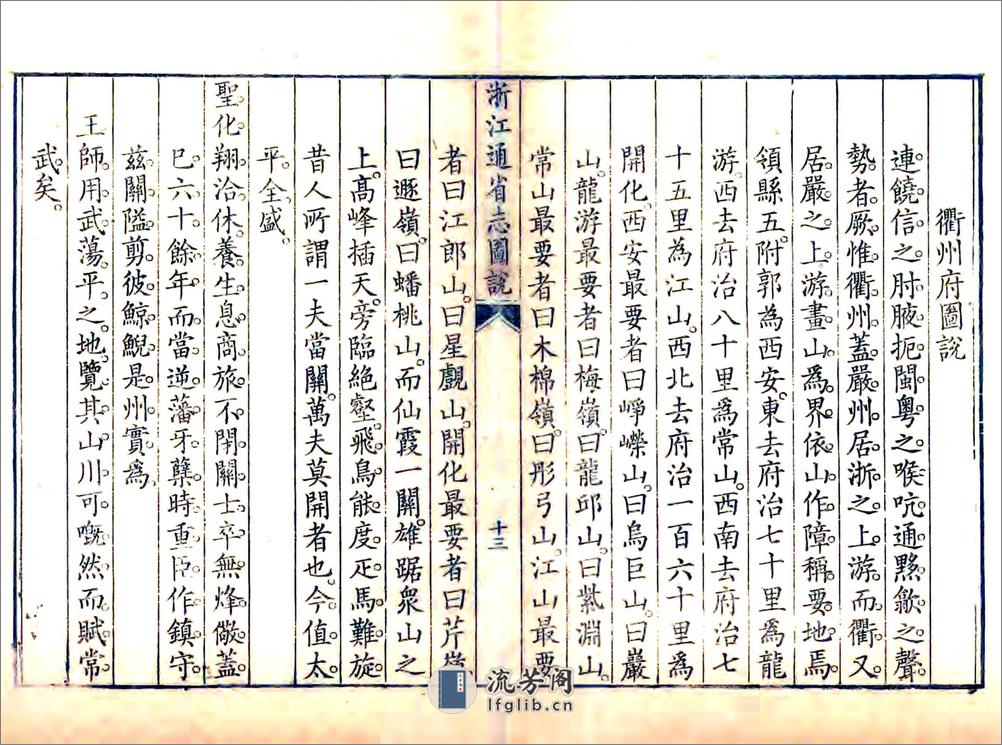 衢州府圖說
連饒信之肘腋扼閩粤之喉吭通黟歙之聲
勢者厥惟衢州蓋嚴州居浙之上游而衢又
居嚴之上游畫山為界依山作障稱要地焉
領縣五附郭為西安東去府治七十里為龍
游西去府治八十里為常山西南去府治七
十五里為江山西北去府治一百六十里為
開化西安最要者曰崢嶸山曰烏巨山曰巖
山龍游最要者曰梅嶺曰龍邱山曰紫淵山
常山最要者曰木棉嶺曰彤弓山江山最要
浙江通省志圖說
十三
者曰江郎山曰星觀山開化最要者曰芹嶺
曰遯嶺曰蟠桃山而仙霞一關雄踞衆山之
上高峰插天旁臨絶壑飛鳥能度疋馬難旋
昔人所謂一夫當關萬夫莫開者也今值太
平全盛
聖化翔洽休養生息商旅不閉關士卒無烽儆蓋
已六十餘年而當逆藩牙孽時重臣作鎮守
兹關隘剪彼鯨鯢是州實為
王師用武蕩平之地覽其山川可嘅然而賦常
武矣
流芳阁
lfglib.cn